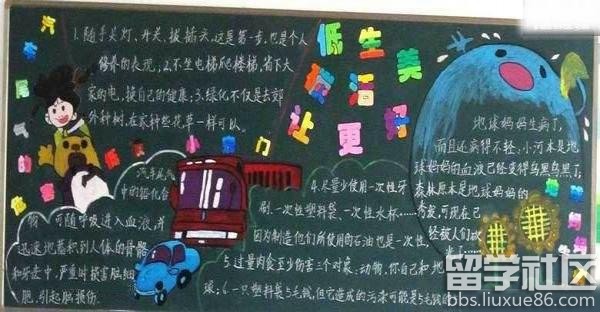 低碳生活
让美更好
1.随手关灯、开关、拔插头,这是第一步,也是个人
修养的表现;2.不坐电梯爬楼梯,省下大
家的电,换自己的健康;3.绿化不仅是去郊
外种树,在家种些花草一样可以。
汽车尾气的危害
小窍门
汽车尾气
中的铅化合
物可随呼吸进入血液,并
迅速地蓄积到人体的骨骼
和牙齿中,严重时损害脑细
胞,引起脑损伤.
4.尽量少使用一次性牙
刷、一次性塑料袋、一次性水杯……
因为制造他们所使用的石油也是一次性
5.过量肉食至少伤害三个对象:动物、你自己和地
球;6.一只塑料袋5毛钱,但它造成的污染可能是5毛钱的
地球妈妈生病了,
而且还病得不轻,小河本是地
球妈妈的血液已经变得乌黑乌黑了;
森林原本是地球妈妈的
秀发,可现在已
经被人们砍
妈妈
留学社区
bbs.liuxue86.com